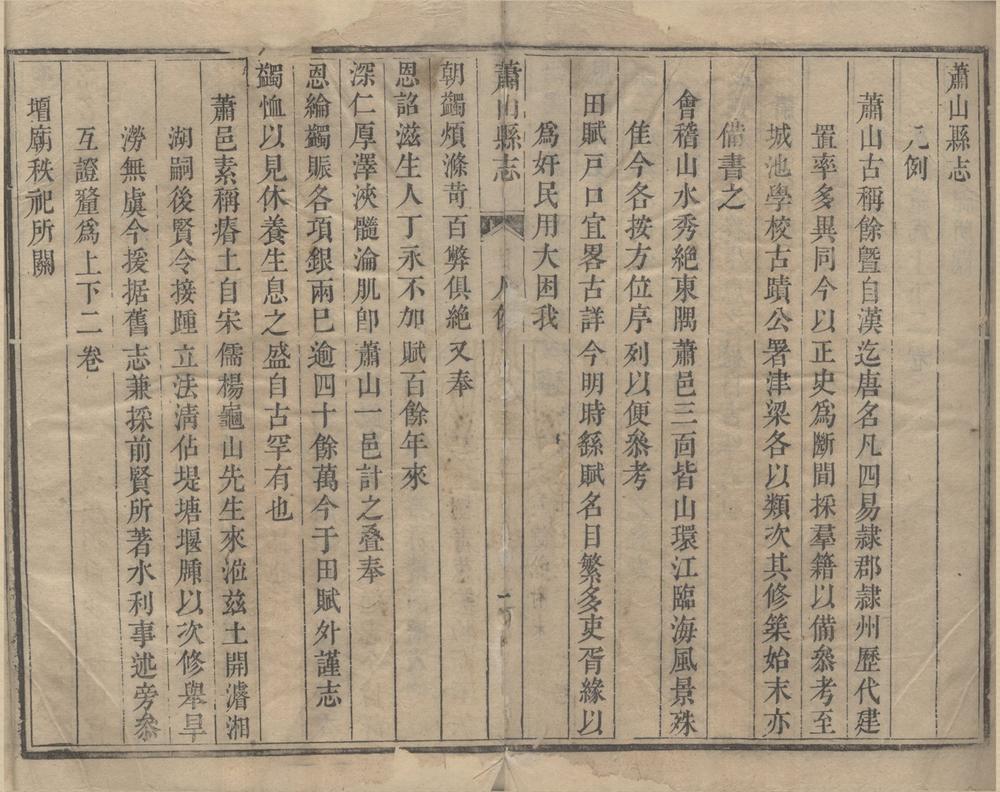 蕭山縣志
凡例
蕭山古稱餘曁自漢迄唐名凡四易隷郡隷州歷代建
置率多異同今以正史爲斷間採羣籍以備叅考至
城池學校古蹟公署津梁各以類次其修築始末亦
備書之
會稽山水秀絶東隅蕭邑三面皆山環江臨海風景殊
隹今各按方位序列以便叅考
田賦戸口宜畧古詳今明時繇賦名目繁多吏胥緣以
爲奸民用大困我
蕭山縣志 凡例 一
朝蠲煩滌苛百弊俱絶又奉
恩詔滋生人丁永不加賦百餘年來
深仁厚澤浹髓淪肌卽蕭山一邑計之叠奉
恩綸蠲賑各項銀兩巳逾四十餘萬今于田賦外謹志
蠲恤以見休養生息之盛自古罕有也
蕭邑素稱瘠土自宋儒楊龜山先生來涖兹土開濬湘
湖嗣後賢令接踵立法淸佔堤塘堰𨻶以次修舉旱
澇無虞今援据舊志兼採前賢所著水利事述旁叅
互證釐爲上下二卷
壇廟秩祀所關